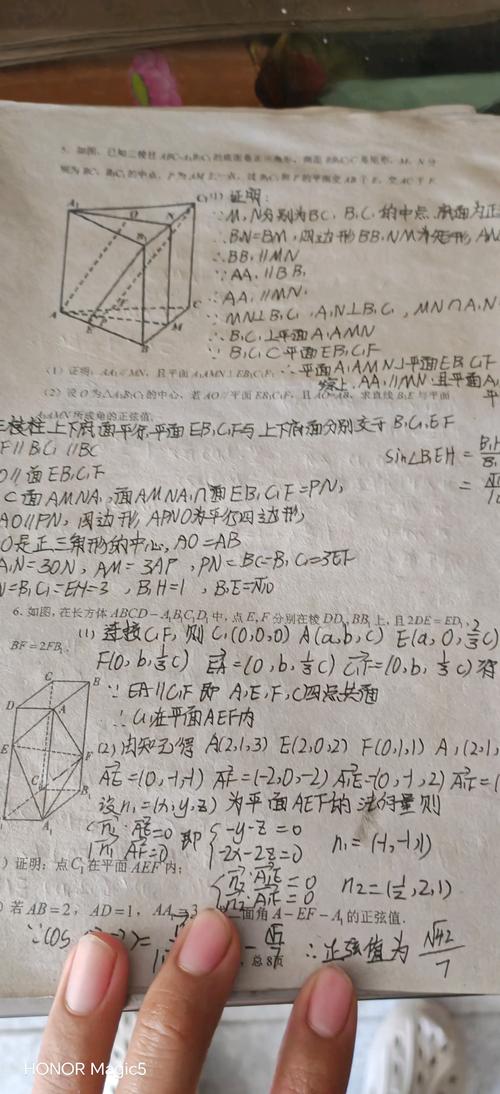 5. 如图，已知三棱柱ABC-A₁B₁C₁的底面是正三角形，侧面BB₁C₁C是矩形，M，N分
别为BC，B₁C₁的中点，P为AM上一点，过B₁C₁和P的平面交AB于E，交AC于F.
(1) 证明：
∵M,N分别为BC，B₁C₁的中点 底面为正
∴B₁N=BM，四边形BB₁NM为矩形，
∴BB₁∥MN
∵AA₁∥BB₁
∴AA₁∥MN，
∵MN⊥B₁C₁，A₁N⊥B₁C₁，MN∩A₁N
∴B₁C₁⊥平面A₁AMN
∵B₁C₁⊂平面EB₁C₁F
∴平面A₁AMN⊥平面EB₁C₁F
综上，AA₁∥MN，且平面A₁
平
(1) 证明：AA₁∥MN，且平面A₁AMN⊥EB₁C₁F；
(2) 设O为△A₁B₁C₁的中心，若AO∥平面EB₁C₁F，且AO=AB，求直线B₁E与平面
A₁AMN所成角的正弦值.
三棱柱上下底面平行，平面EB₁C₁F与上下底面分别交于B₁C₁,EF
F∥B₁C₁∥BC
O∥面EB₁C₁F
⊂面AMNA₁，面AMNA₁∩面EB₁C₁F=PN，
AO∥PN，四边形APNO为平行四边形，
O是正三角形的中心，AO=AB
A₁N=3ON，AM=3AP，PN=BC=B₁C₁=3EF
N=B₁C₁=EH=3，B₁H=1，B₁E=√10
sin∠B₁EH=
6. 如图，在长方体ABCD-A₁B₁C₁D₁中，点E，F分别在棱DD₁，BB₁上，且2DE=ED₁，
BF=2FB₁.
(1) 连接C₁F，则C₁(0,0,0) A(a,b,c) E(a,0,⅔c)
F(0,b,⅓c) EA=(0,b,⅓c) C₁F=(0,b,⅓c) 得
∵EA∥C₁F即A,E,F,C₁四点共面
∴C₁在平面AEF内
(2) 由知元得 A(2,1,3) E(2,0,2) F(0,1,1) A₁(2,1,
AE=(0,-1,-1) AF=(-2,0,-2) A₁E=(0,-1,2)
设n₁=(x,y,z)为平面AEF的法向量则
n₁·AE=0 即 -y-z=0
n₁·AF=0 -2x-2z=0 n₁=(-1,-1,1)
) 证明：点C₁在平面AEF内；
n₂·A₁E=0 n₂=(½,2,1)
) 若AB=2，AD=1，AA₁=3 面角A-EF-A₁的正弦值.
∵cos ∴正弦值为√42/7
总8页
HONOR Magic5